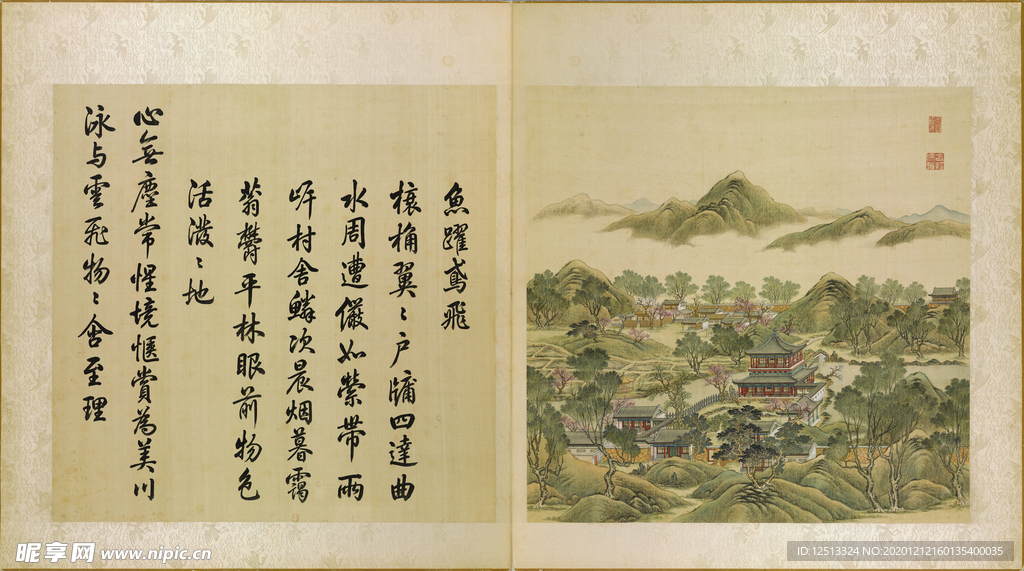 魚躍鳶飛
榱桷翼〻戶牖四達曲
水周遭儼如縈帶兩
岸村舍鱗次晨烟暮靄
蓊鬱平林眼前物色
活潑〻地
心無塵常惺境愜賞為美川
泳与雲飛物〻含至理
昵享网 www.nipic.cn
ID:12513324 NO:20201212160135400035